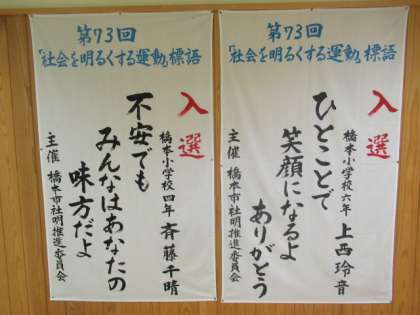 第73回
「社会を明るくする運動」標語
入選
橋本小学校六年 上西玲音
ひとことで
笑顔になるよ
ありがとう
主催 橋本市社明推進委員会
第73回
「社会を明るくする運動」標語
入選
橋本小学校四年 斉藤千晴
不安でも
みんなはあなたの
味方だよ
主催 橋本市社明推進委員会